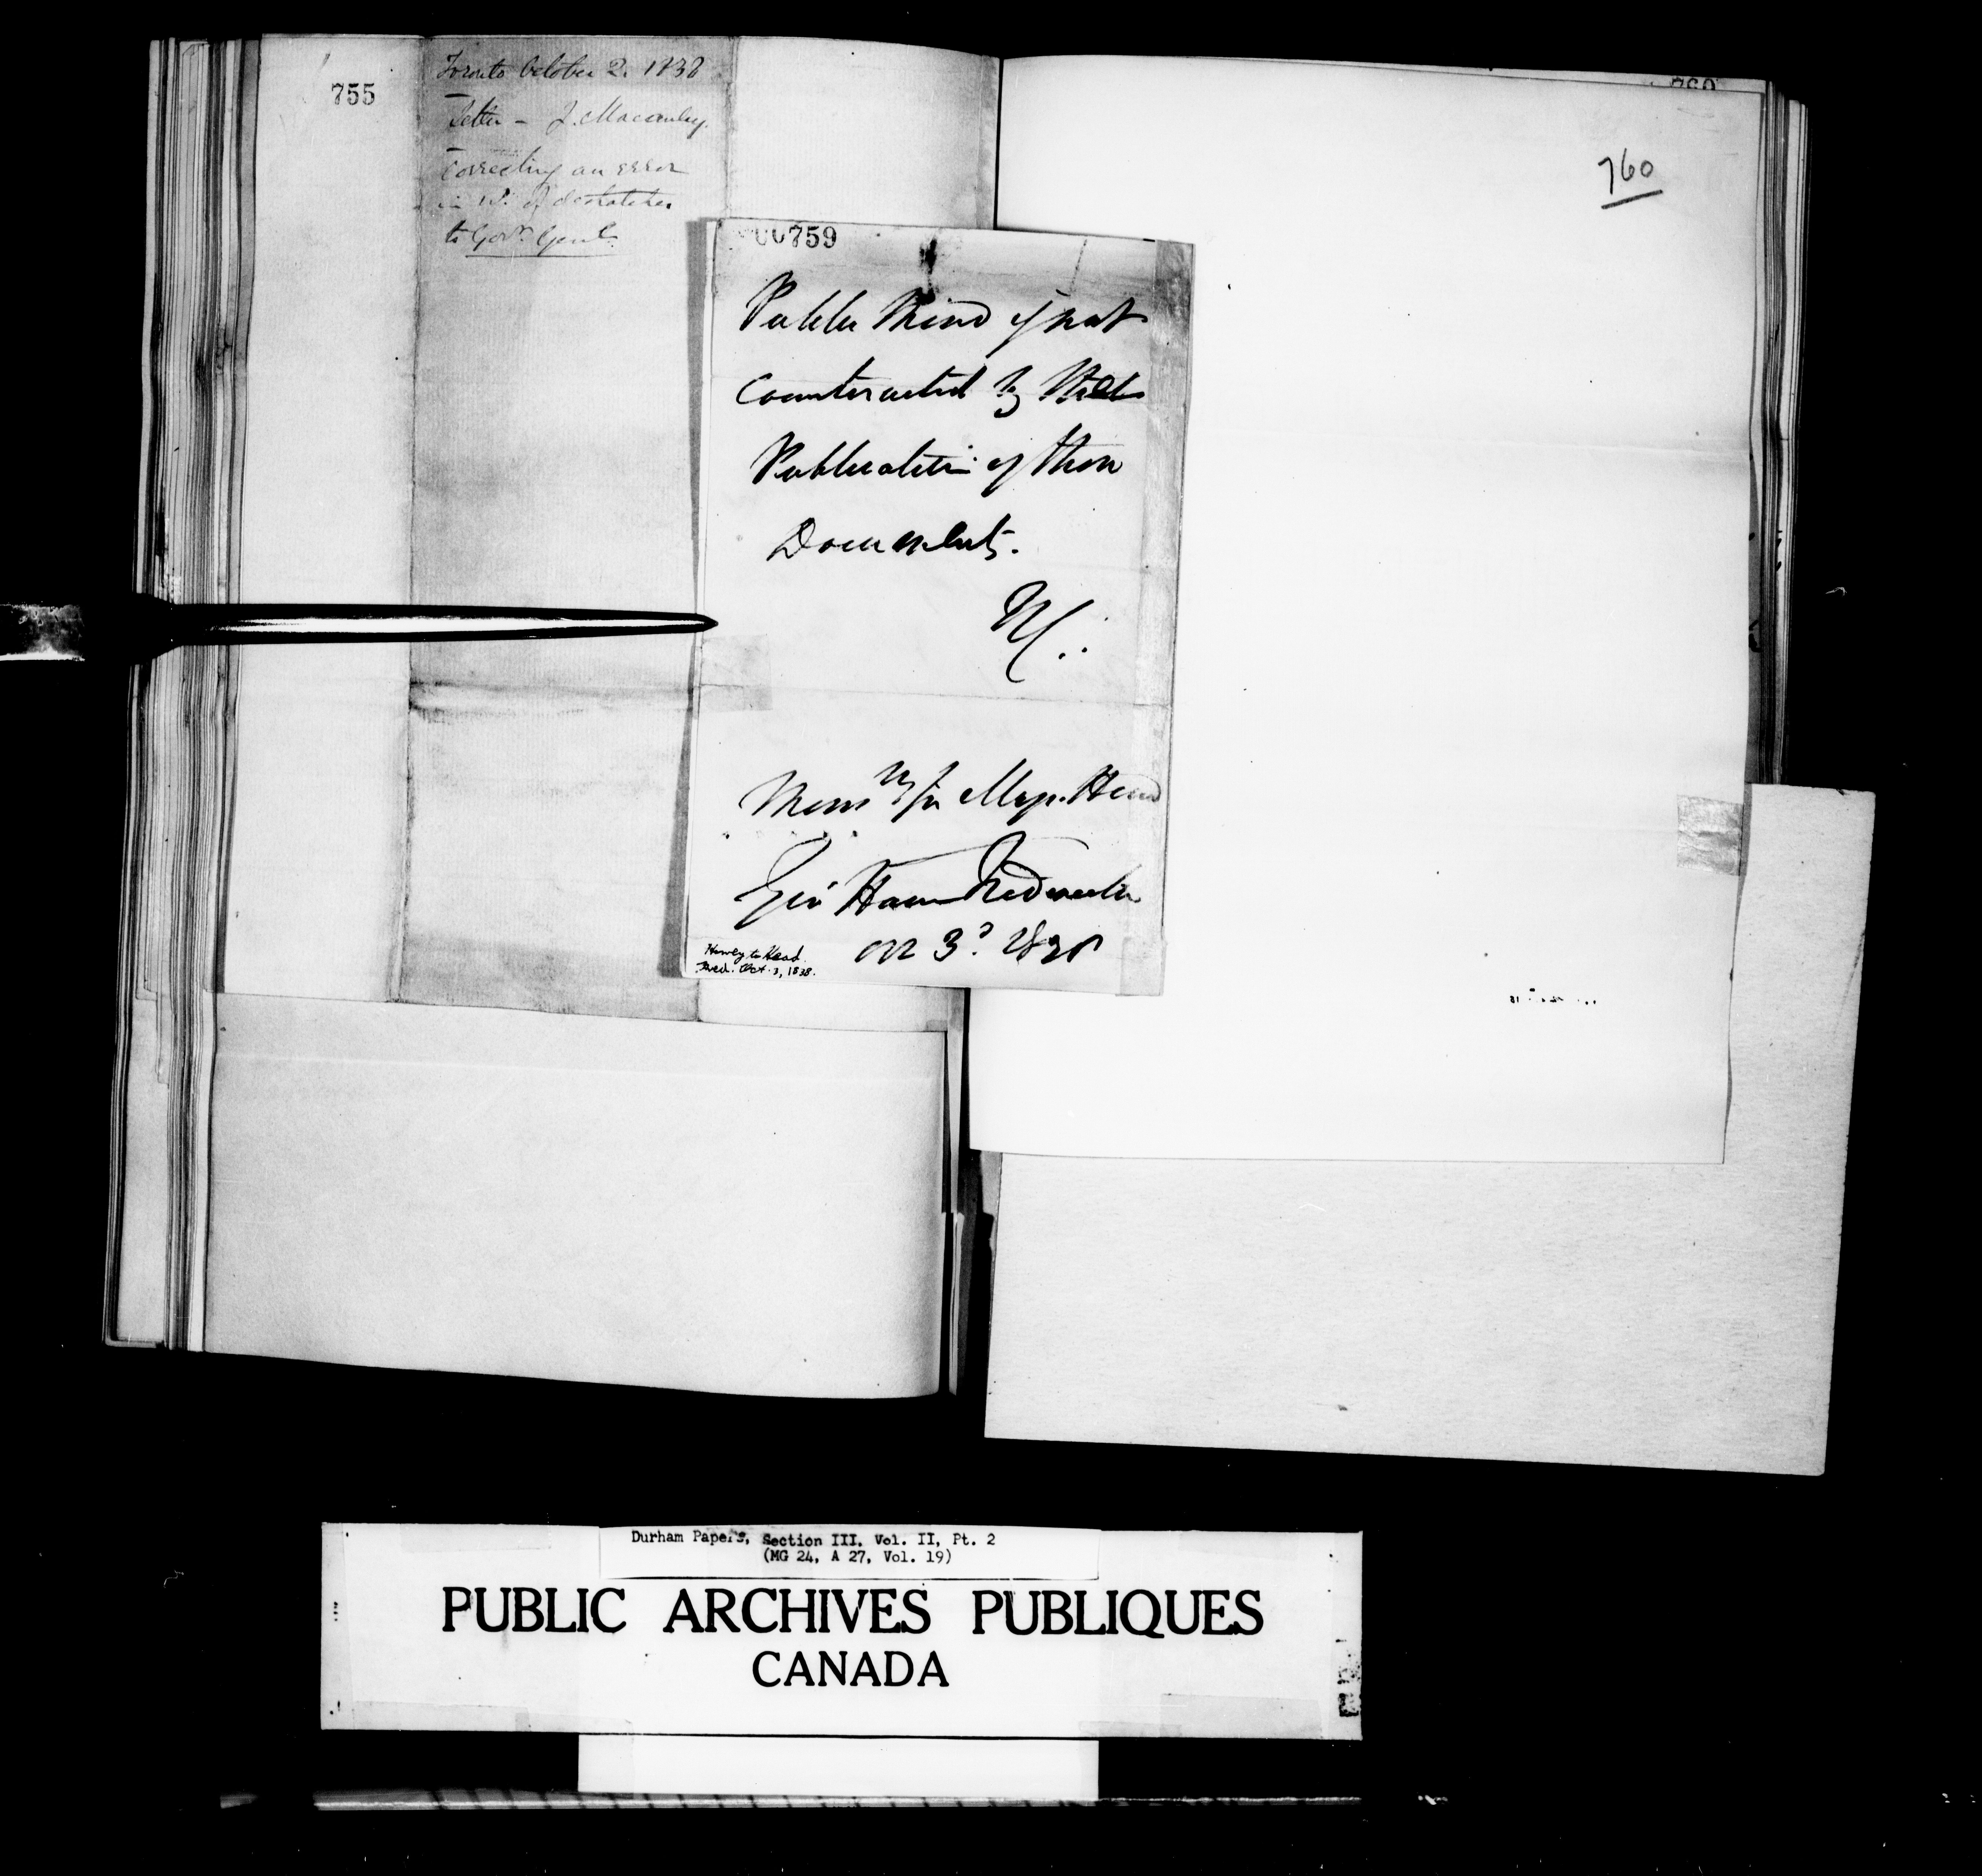 755
Toronto October 2. 1838
Letter - J. Macaulay.
Correcting an error
in No. of despatches
to Govr. Genl.
00759
Public Mind if not
Counteracted by
Publication of these
Documents.
H..
Memm for Maj. Head
Govt House Fredericton
Oct 3d 1838
Harvey to Head.
Fred. Oct. 3, 1838.
760
760
Durham Papers, Section III. Vol. II, Pt. 2
(MG 24, A 27, Vol. 19)
PUBLIC ARCHIVES PUBLIQUES
CANADA